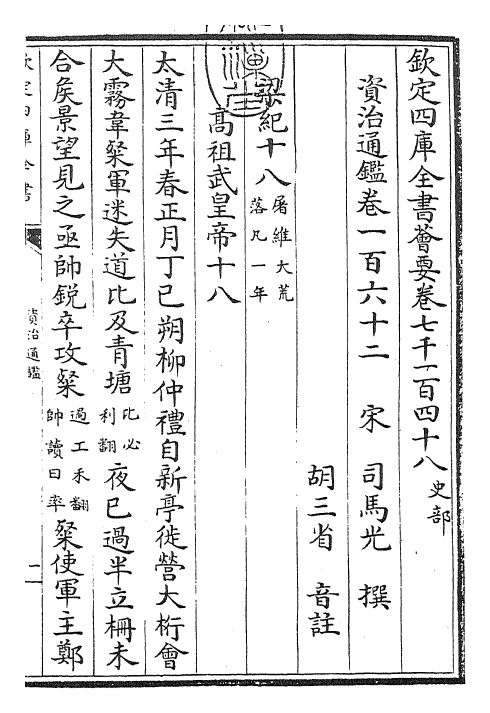 欽定四庫全書薈要卷七千一百四十八 史部
資治通鑑卷一百六十二 宋 司馬光 撰
胡三省 音註
梁紀十八 屠維大荒落凡一年
高祖武皇帝十八
太清三年春正月丁巳朔柳仲禮自新亭徙營大桁會
大霧韋粲軍迷失道比及青塘比必利翻夜已過半立柵未
合矦景望見之亟帥銳卒攻粲過工禾翻帥讀曰率粲使軍主鄭
資治通鑑
一